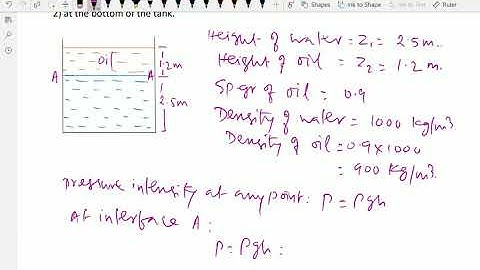 Shapes Ink to Shape Ink to Text Ruler
2) at the bottom of the tank.
Height of water = Z₁ = 2.5 m.
Height of oil = Z₂ = 1.2 m.
Oil
1.2 m
A A
2.5 m
Sp.gr of oil = 0.9
Density of water = 1000 kg/m³
Density of oil = 0.9 x 1000
= 900 kg/m³.
Pressure intensity at any point: P = ρgh
At interface A:
P = ρgh =